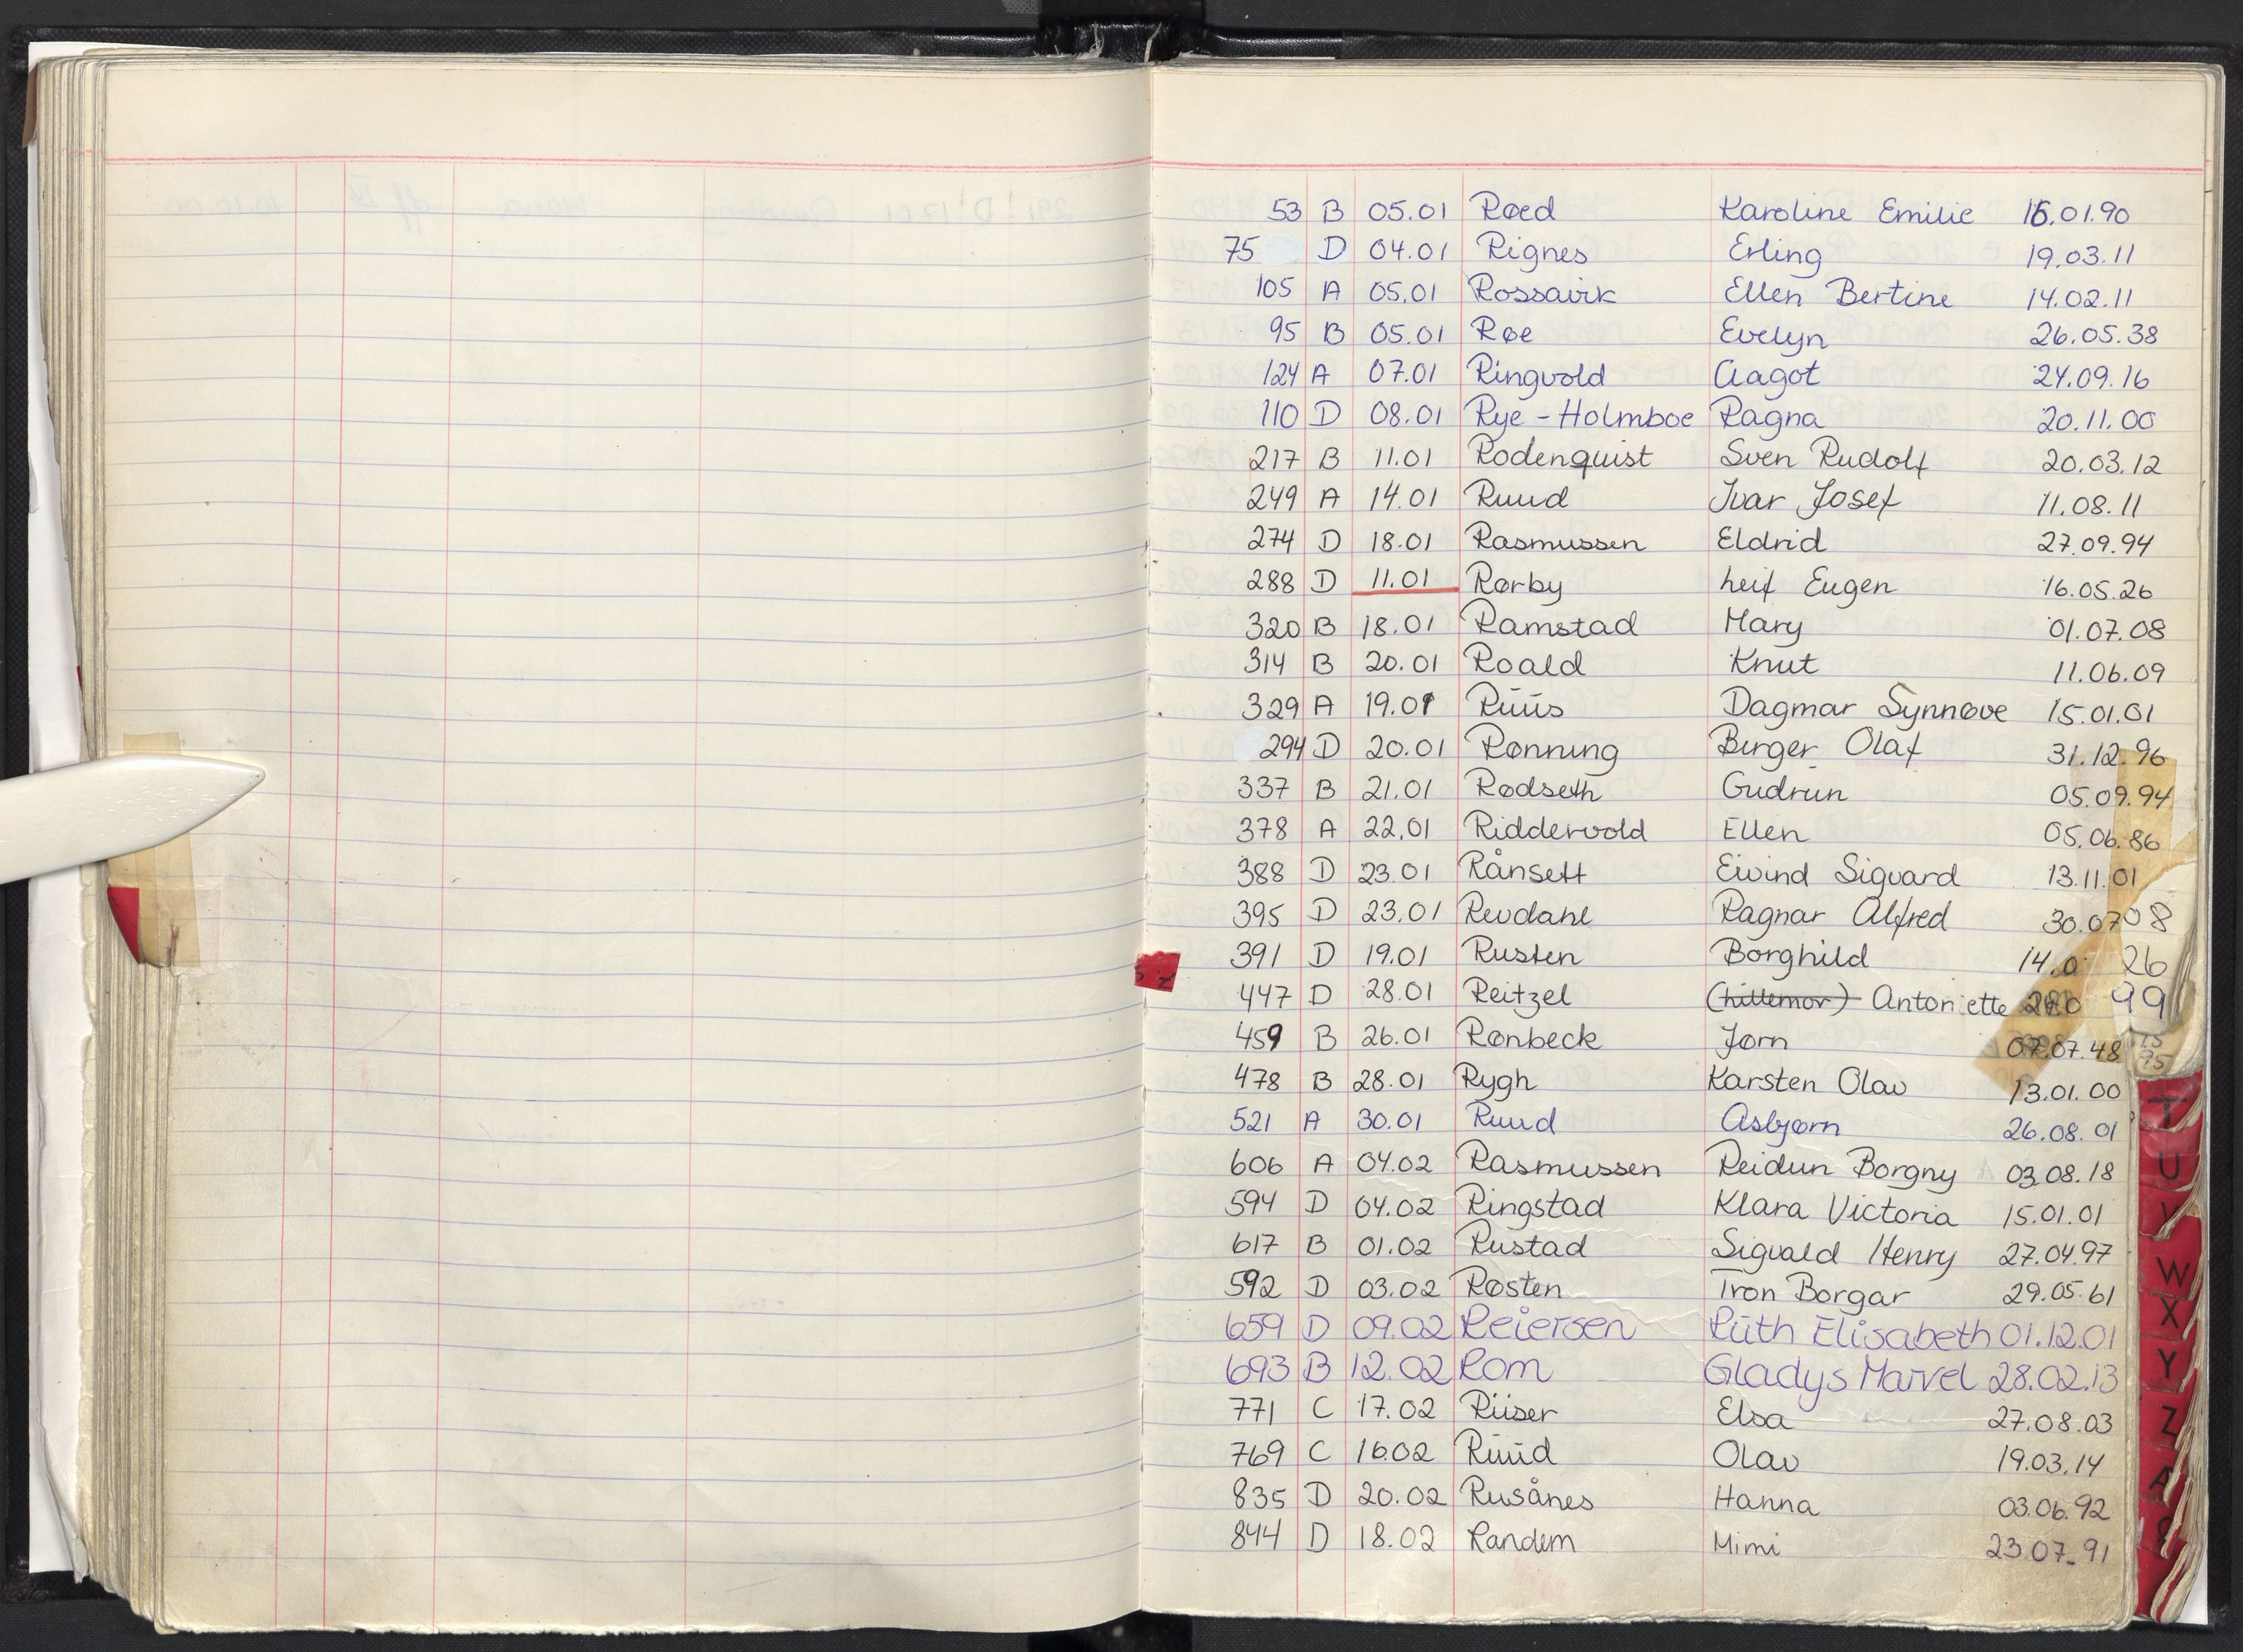 53 B 05.01 Røed Karoline Emilie 16.01.90
75 D 04.01 Rignes Erling 19.03.11
105 A 05.01 Rossavik Ellen Bertine 14.02.11
95 B 05.01 Røe Evelyn 26.05.38
124 A 07.01 Ringvold Aagot 24.09.16
110 D 08.01 Rye - Holmboe Ragna 20.11.00
217 B 11.01 Rodenquist Sven Rudolf 20.03.12
249 A 14.01 Ruud Ivar Josef 11.08.11
274 D 18.01 Rasmussen Eldrid 27.09.94
288 D 11.01 Rørby Leif Eugen 16.05.26
320 B 18.01 Ramstad Mary 01.07.08
314 B 20.01 Roald Knut 11.06.09
329 A 19.01 Ruus Dagmar Synnøve 15.01.01
294 D 20.01 Rønning Birger Olaf 31.12.96
337 B 21.01 Rødseth Gudrun 05.09.94
378 A 22.01 Riddervold Ellen 05.06.86
388 D 23.01 Rånsett Eivind Sigvard 13.11.01
395 D 23.01 Revdahl Ragnar Alfred 30.07 08
391 D 19.01 Rusten Borghild 14.0 26
447 D 28.01 Reitzel (Lillemor) Antoniette 99
459 B 26.01 Rønbeck Jørn 07.07.48
478 B 28.01 Rygh Karsten Olav 13.01.00
521 A 30.01 Ruud Asbjørn 26.08.01
606 A 04.02 Rasmussen Reidun Borgny 03.08.18
594 D 04.02 Ringstad Klara Victoria 15.01.01
617 B 01.02 Rustad Sigvald Henry 27.04.97
592 D 03.02 Røsten Tron Borgar 29.05.61
659 D 09.02 Reiersen Ruth Elisabeth 01.12.01
693 B 12.02 Rom Gladys Marvel 28.02.13
771 C 17.02 Riiser Elsa 27.08.03
769 C 16.02 Ruud Olav 19.03.14
835 D 20.02 Rusånes Hanna 03.06.92
844 D 18.02 Randem Mimi 23.07.91
T
U
V
W
X
Y
Z